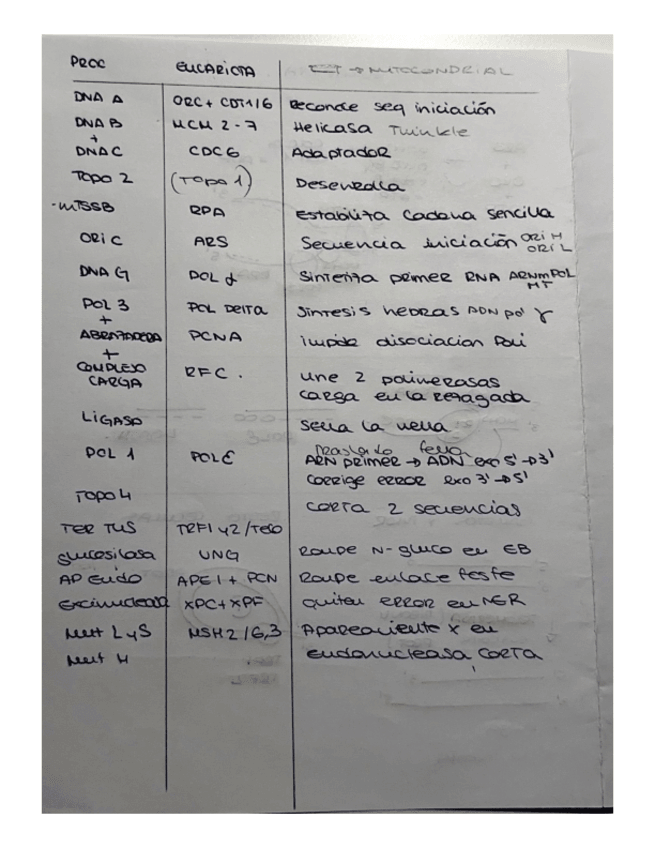 PROC EUCARIOTA → MITOCONDRIAL
DNA A ORC + CDT1/6 Reconoce seq iniciación
DNA B MCM 2-7 Helicasa Twinkle
+
DNA C CDC6 Adaptador
TOPO 2 (TOPO 1) Desenrolla
-mTSSB RPA Estabiliza cadena sencilla
ORI C ARS Secuencia iniciación ORI H
ORI L
DNA G POL α Sintetiza primer RNA ARNm POL
MT
POL 3 POL DELTA Síntesis hebras ADN pol γ
+
ABRAZADERA PCNA impide disociacion Poli
+
COMPLEJO
CARGA RFC. une 2 polimerasas
carga en la retagada
LIGASA sella la
POL 1 POL E
ARN primer → ADN exo 5'→3'
corrige error exo 3'→5'
TOPO 4 CORTA 2 secuencias
TER TUS TRF1 y 2/Teso
glucosilasa UNG Rompe N-gluco en EB
AP Endo APE1 + PCN Rompe enlace fosfo
Escinucleasa XPC + XPF quitan error en NER
Mut L y S MSH2/6,3 Apareamiento x en
Mut H endonucleasa, CORTA